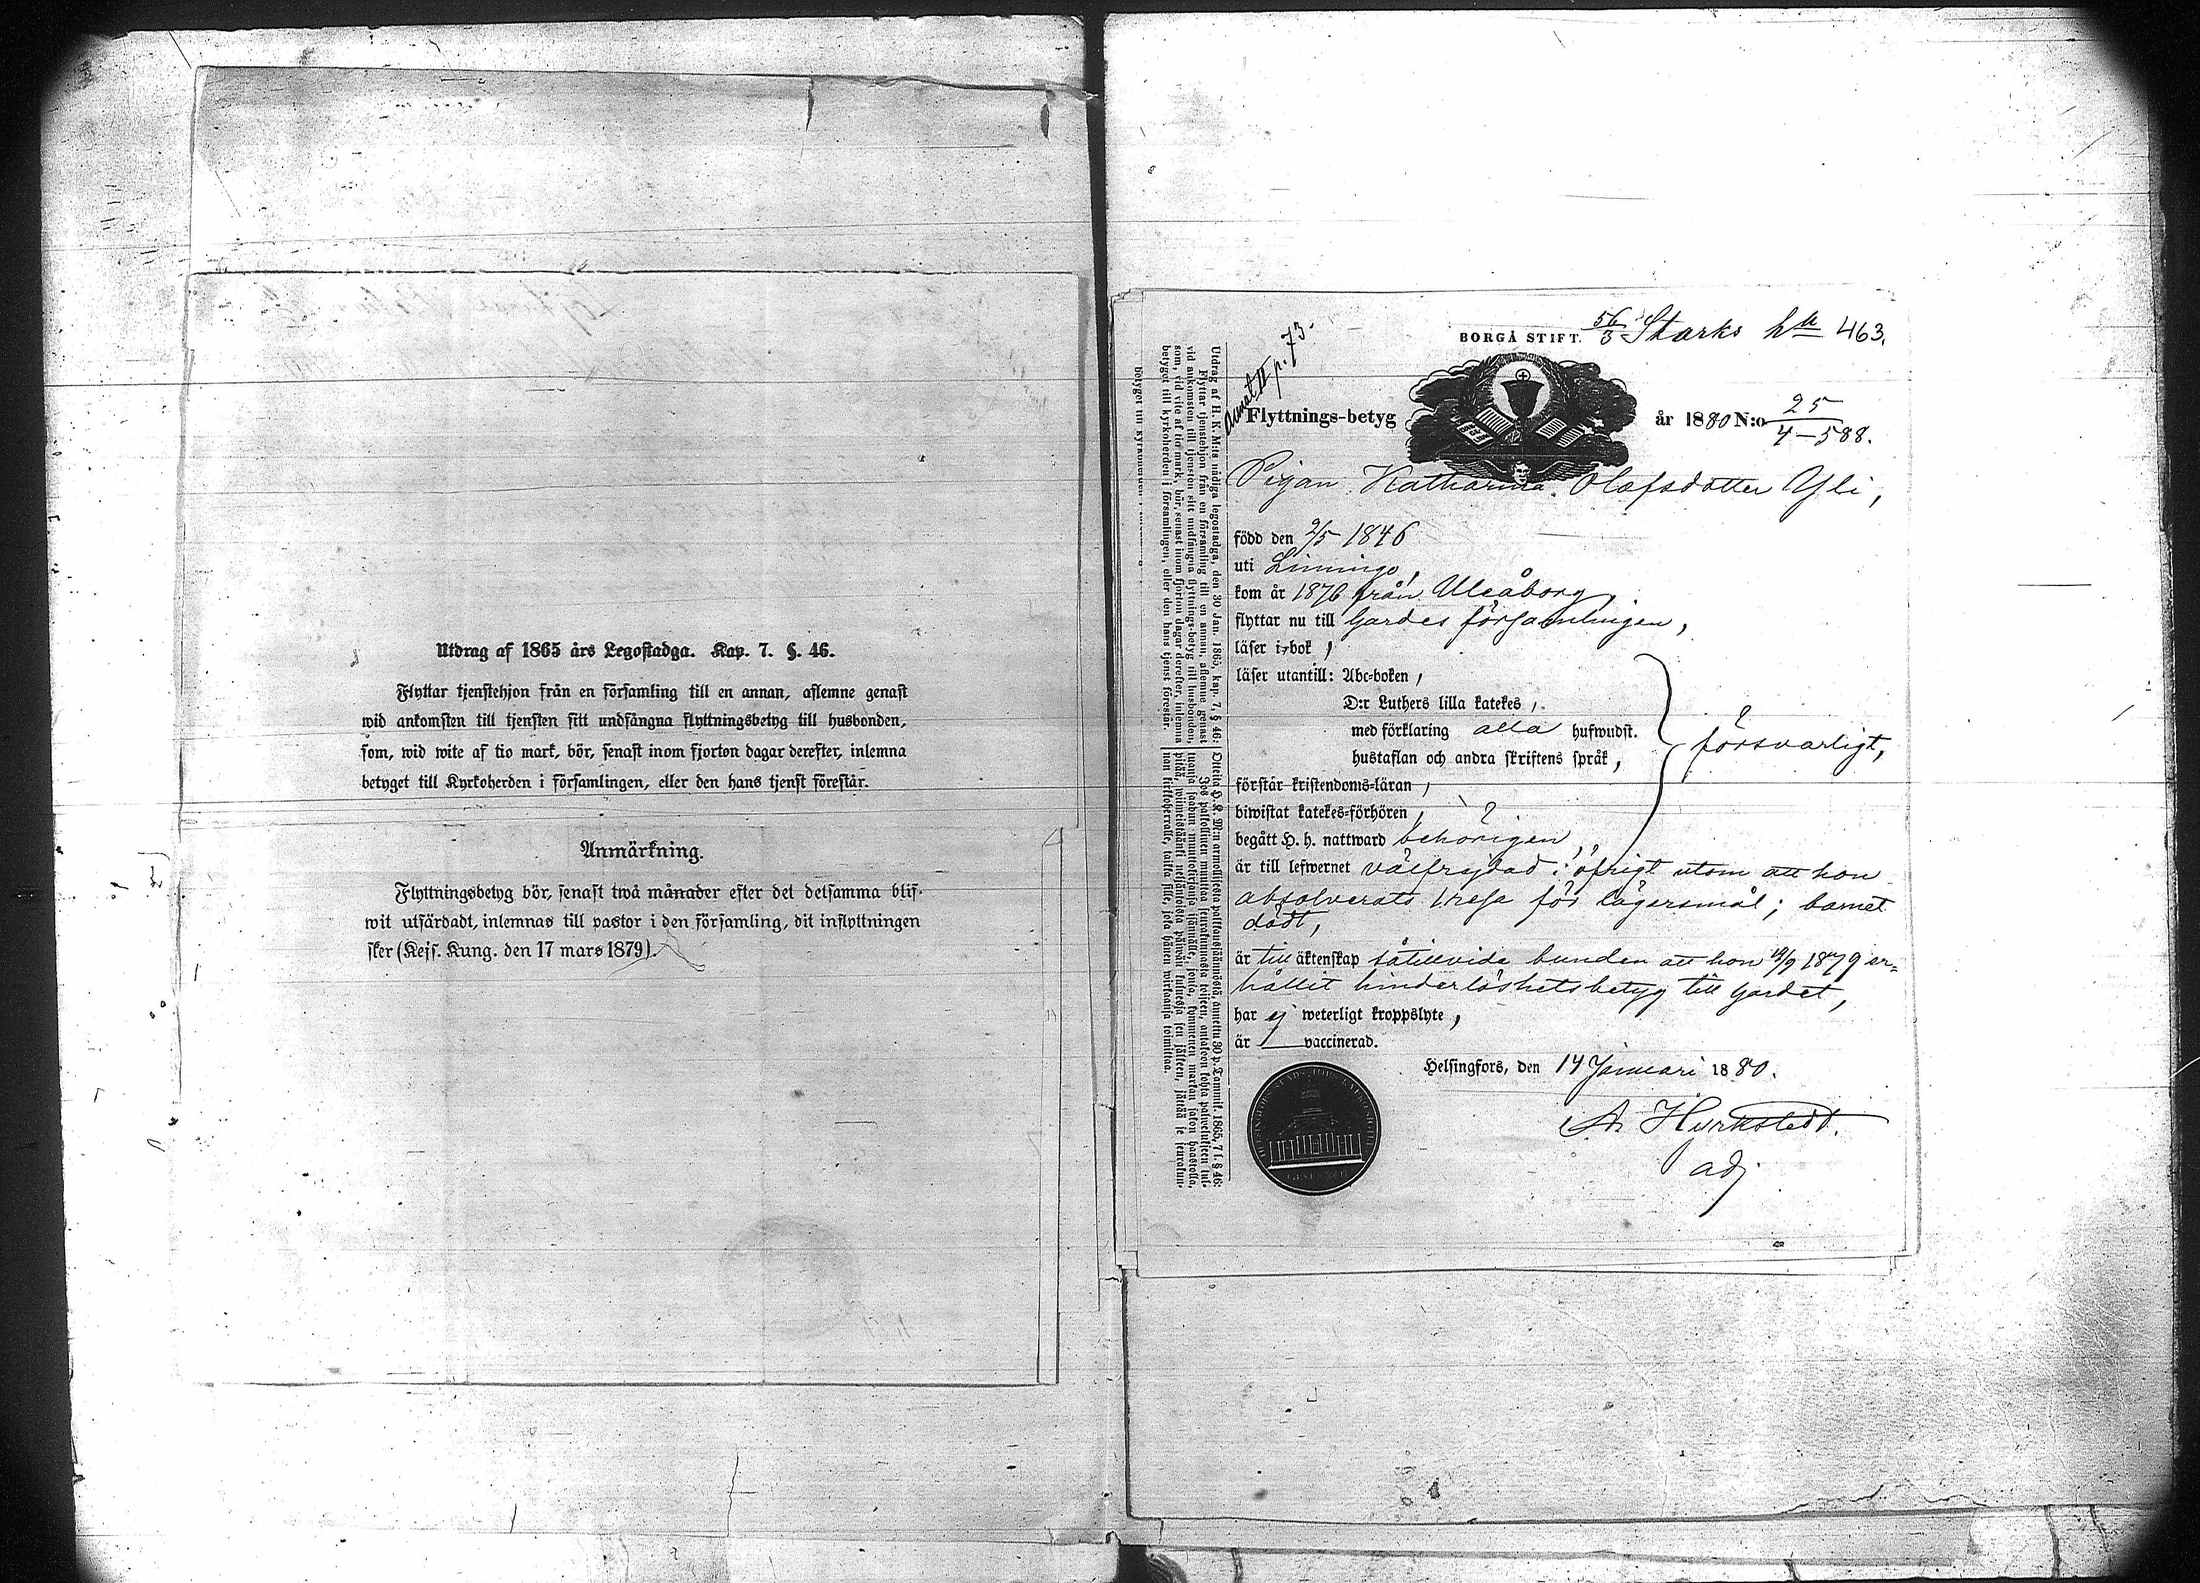 Utdrag af 1865 års Legostadga. Kap. 7. §. 46.
Flyttar tjenstehjon från en församling till en annan, aflemne genast
wid ankomsten till tjensten sitt undfångna flyttningsbetyg till husbonden,
som, wid wite af tio mark, bör, senast inom fjorton dagar derefter, inlemna
betyget till Kyrkoherden i församlingen, eller den hans tjenst förestår.
Anmärkning.
Flyttningsbetyg bör, senast twå månader efter det detsamma blif-
wit utfärdadt, inlemnas till pastor i den församling, dit inflyttningen
sker (Kejs. Kung. den 17 mars 1879).
56/3 Starks 463.
BORGÅ STIFT.
p. 73.
Flyttnings-betyg år 1880 N:o 25/4–588.
Pigan Katharina Olofsdotter Yli,
född den 2/5 1846
uti Limingo,
kom år 1876 från Uleåborg,
flyttar nu till Gardes församlingen,
läser i bok,
läser utantill: Abc-boken,
D:r Luthers lilla katekes,
med förklaring alla hufwudst.
hustaflan och andra skriftens språk,
försvarligt,
förstår kristendoms-läran,
biwistat katekes-förhören,
begått H. h. nattward behörigen,
är till lefwernet välfrejdad i öfrigt utom att hon
absolverats 1 resa för lägersmål; barnet
dödt,
är till äktenskap såtillvida bunden att hon 1879 er-
hållit hinderlöshetsbetyg till Gardet,
har ej weterligt kroppslyte,
är vaccinerad.
Helsingfors, den 14 Januari 1880.
adj.
Utdrag af H. K. M:ts nådiga legostadga, den 30 Jan. 1865, kap. 7, § 46:
Flyttar tjenstehjon från en församling till en annan, aflemne genast
vid ankomsten till tjensten sitt undfångna flyttnings-betyg till husbonden,
som, vid vite af tio mark, bör, senast inom fjorton dagar derefter, inlemna
betyget till kyrkoherden i församlingen, eller den hans tjenst förestår.